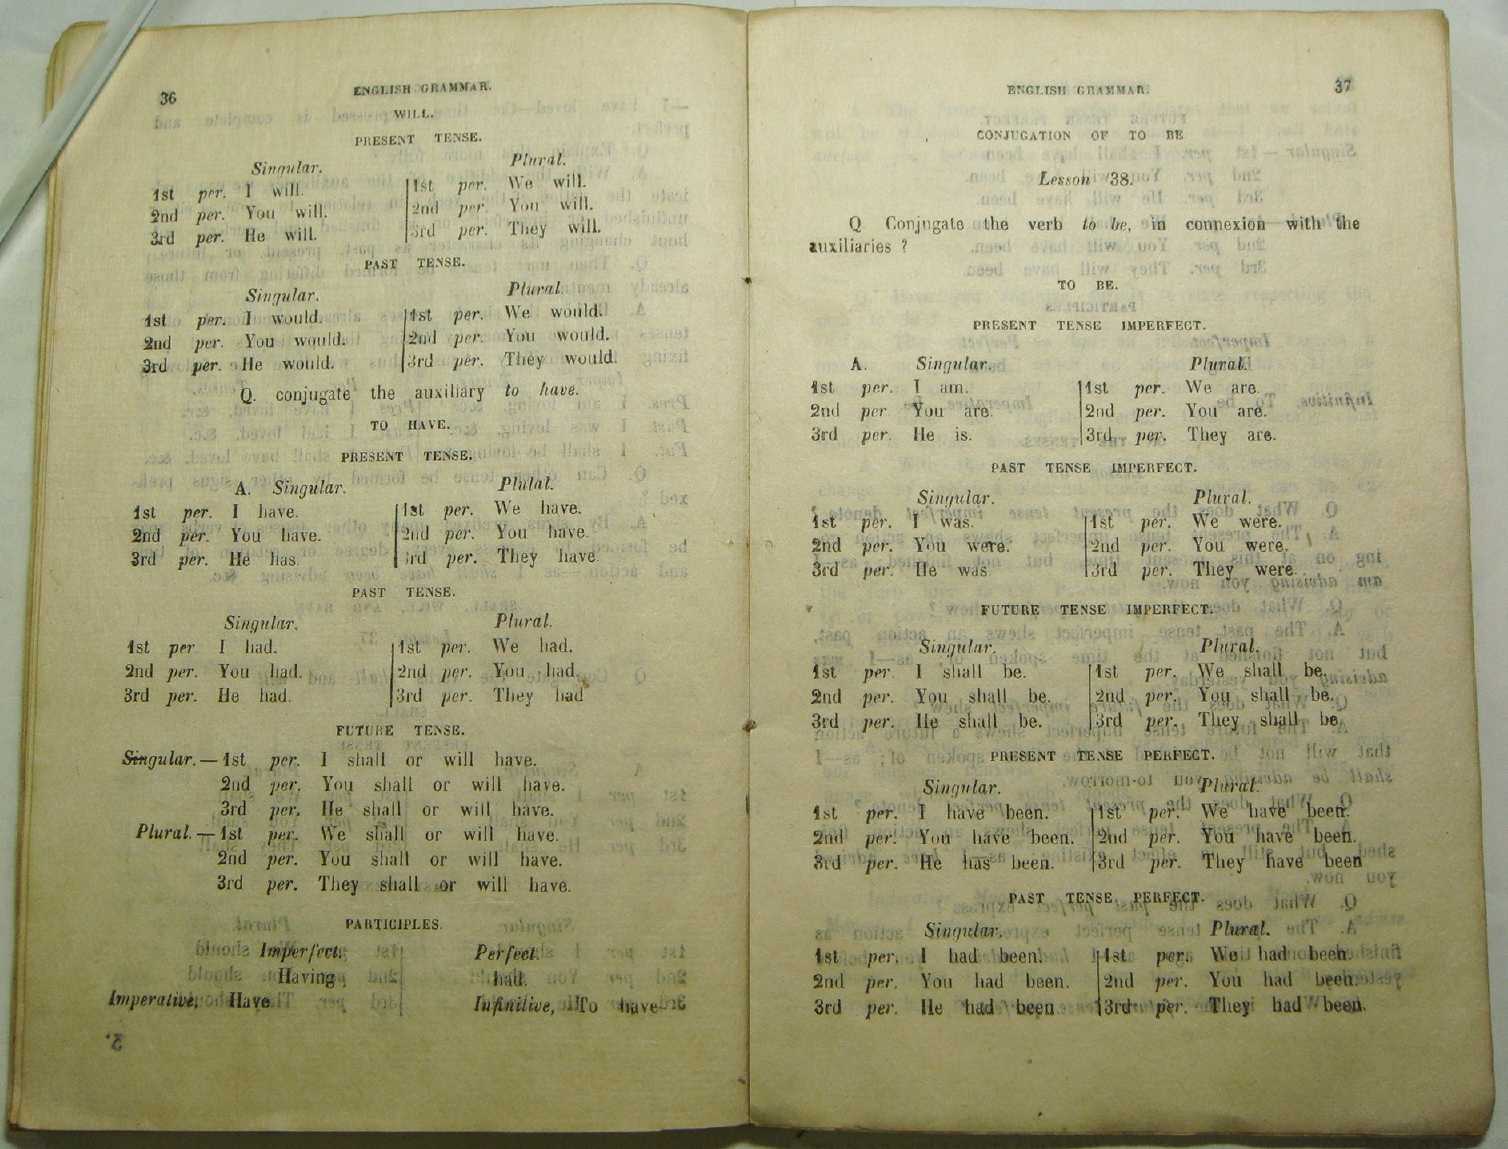 36
ENGLISH GRAMMAR.
WILL.
PRESENT TENSE.
Singular. Plural.
1st per. I will. 1st per. We will.
2nd per. You will. 2nd per. You will.
3rd per. He will. 3rd per. They will.
PAST TENSE.
Singular. Plural.
1st per. I would. 1st per. We would.
2nd per. You would. 2nd per. You would.
3rd per. He would. 3rd per. They would.
Q. conjugate the auxiliary to have.
TO HAVE.
PRESENT TENSE.
A. Singular. Plulal.
1st per. I have. 1st per. We have.
2nd per. You have. 2nd per. You have.
3rd per. He has. 3rd per. They have
PAST TENSE.
Singular. Plural.
1st per I had. 1st per. We had.
2nd per. You had. 2nd per. You had.
3rd per. He had. 3rd per. They had
FUTURE TENSE.
Singular.—1st per. I shall or will have.
2nd per. You shall or will have.
3rd per. He shall or will have.
Plural.—1st per. We shall or will have.
2nd per. You shall or will have.
3rd per. They shall or will have.
PARTICIPLES.
Imperfect. Perfect.
Having had.
Imperative, Have Infinitive, To have
ENGLISH GRAMMAR.
37
CONJUGATION OF TO BE
Lesson 38.
Q Conjugate the verb to be, in connexion with the
auxiliaries ?
TO BE.
PRESENT TENSE IMPERFECT.
A. Singular. Plural.
1st per. I am. 1st per. We are.
2nd per You are. 2nd per. You are.
3rd per. He is. 3rd per. They are.
PAST TENSE IMPERFECT.
Singular. Plural.
1st per. I was. 1st per. We were.
2nd per. You were. 2nd per. You were.
3rd per. He was 3rd per. They were.
FUTURE TENSE IMPERFECT.
Singular. Plural.
1st per. I shall be. 1st per. We shall be.
2nd per. You shall be. 2nd per. You shall be.
3rd per. He shall be. 3rd per. They shall be
PRESENT TENSE PERFECT.
Singular. Plural.
1st per. I have been. 1st per. We have been.
2nd per. You have been. 2nd per. You have been.
3rd per. He has been. 3rd per. They have been
PAST TENSE PERFECT.
Singular. Plural.
1st per. I had been. 1st per. We had been.
2nd per. You had been. 2nd per. You had been.
3rd per. He had been 3rd per. They had been.